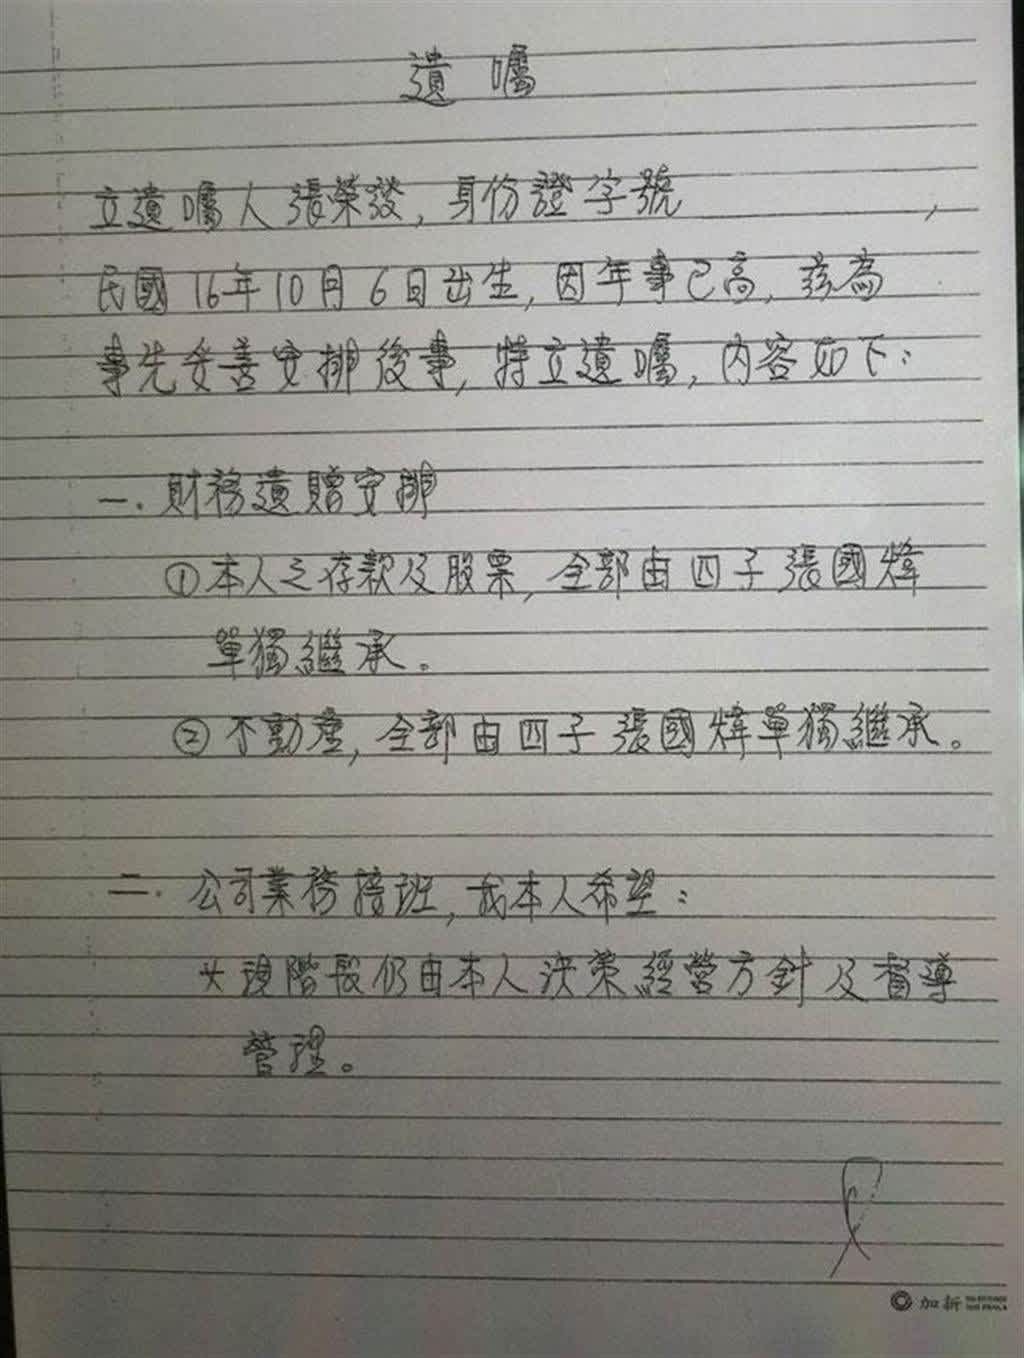 遺囑
立遺囑人張榮發, 身份證字號 ,
民國16年10月6日出生, 因年事已高, 玆為
事先妥善安排後事, 特立遺囑, 內容如下:
一. 財務遺贈安排
①本人之存款及股票, 全部由四子張國煒
單獨繼承。
②不動產, 全部由四子張國煒單獨繼承。
二. 公司業務接班, 我本人希望:
*現階段仍由本人決策經營方針及督導
管理。
加新